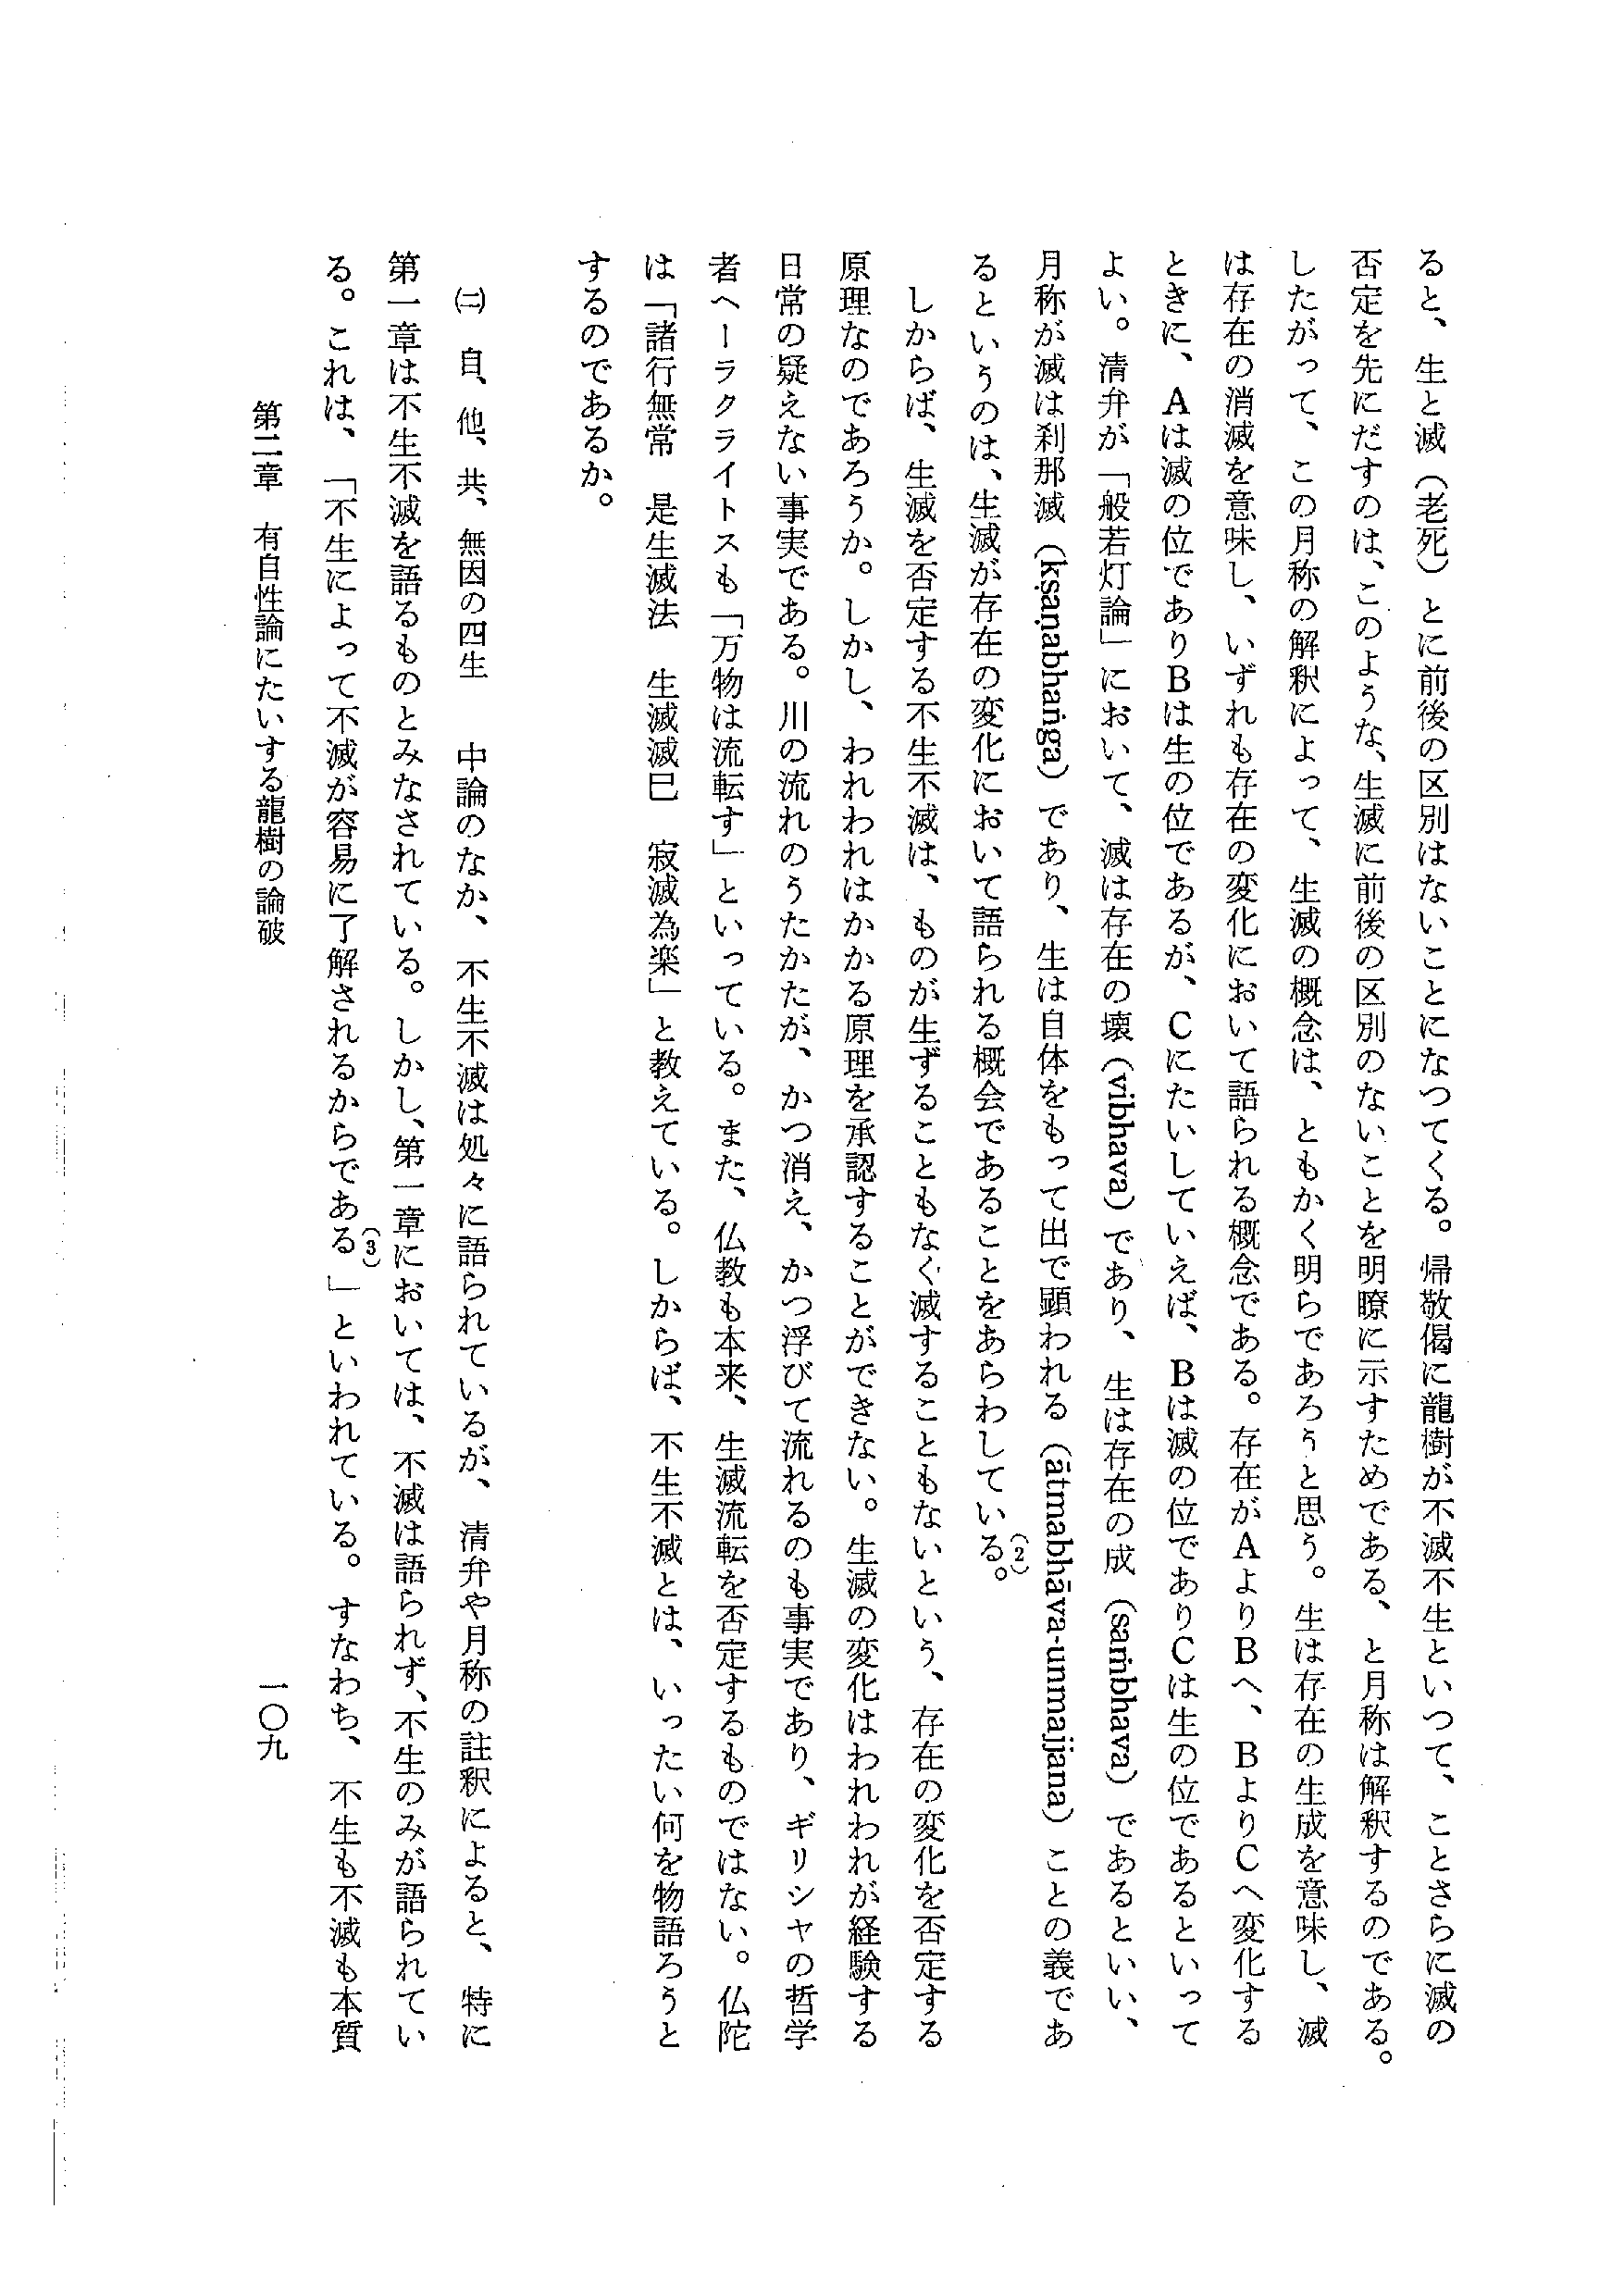 ると、生と滅（老死）とに前後の区別はないことになつてくる。帰敬偈に龍樹が不滅不生といつて、ことさらに滅の
否定を先にだすのは、このような、生滅に前後の区別のないことを明瞭に示すためである、と月称は解釈するのである。
したがって、この月称の解釈によって、生滅の概念は、ともかく明らであろうと思う。生は存在の生成を意味し、滅
は存在の消滅を意味し、いずれも存在の変化において語られる概念である。存在がAよりBへ、BよりCへ変化する
ときに、Aは滅の位でありBは生の位であるが、Cにたいしていえば、Bは滅の位でありCは生の位であるといって
よい。清弁が「般若灯論」において、滅は存在の壊（vibhava）であり、生は存在の成（saṁbhava）であるといい、
月称が滅は刹那滅（kṣaṇabhaṅga）であり、生は自体をもって出で顕われる（ātmabhāva-unmajjana）ことの義であ
るというのは、生滅が存在の変化において語られる概会であることをあらわしている。（2）
しからば、生滅を否定する不生不滅は、ものが生ずることもなく滅することもないという、存在の変化を否定する
原理なのであろうか。しかし、われわれはかかる原理を承認することができない。生滅の変化はわれわれが経験する
日常の疑えない事実である。川の流れのうたかたが、かつ消え、かつ浮びて流れるのも事実であり、ギリシヤの哲学
者ヘーラクライトスも「万物は流転す」といっている。また、仏教も本来、生滅流転を否定するものではない。仏陀
は「諸行無常　是生滅法　生滅滅巳　寂滅為楽」と教えている。しからば、不生不滅とは、いったい何を物語ろうと
するのであるか。
㈡　自、他、共、無因の四生　中論のなか、不生不滅は処々に語られているが、清弁や月称の註釈によると、特に
第一章は不生不滅を語るものとみなされている。しかし、第一章においては、不滅は語られず、不生のみが語られてい
る。これは、「不生によって不滅が容易に了解されるからである（3）」といわれている。すなわち、不生も不滅も本質
第二章　有自性論にたいする龍樹の論破
一〇九